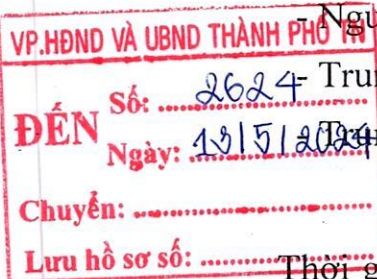 - Ngu
VP.HĐND VÀ UBND THÀNH PHỐ
- Tru
ĐẾN
Số: 2624
Ngày: 13/5/2024
Chuyển:
Lưu hồ sơ số:
Thời g